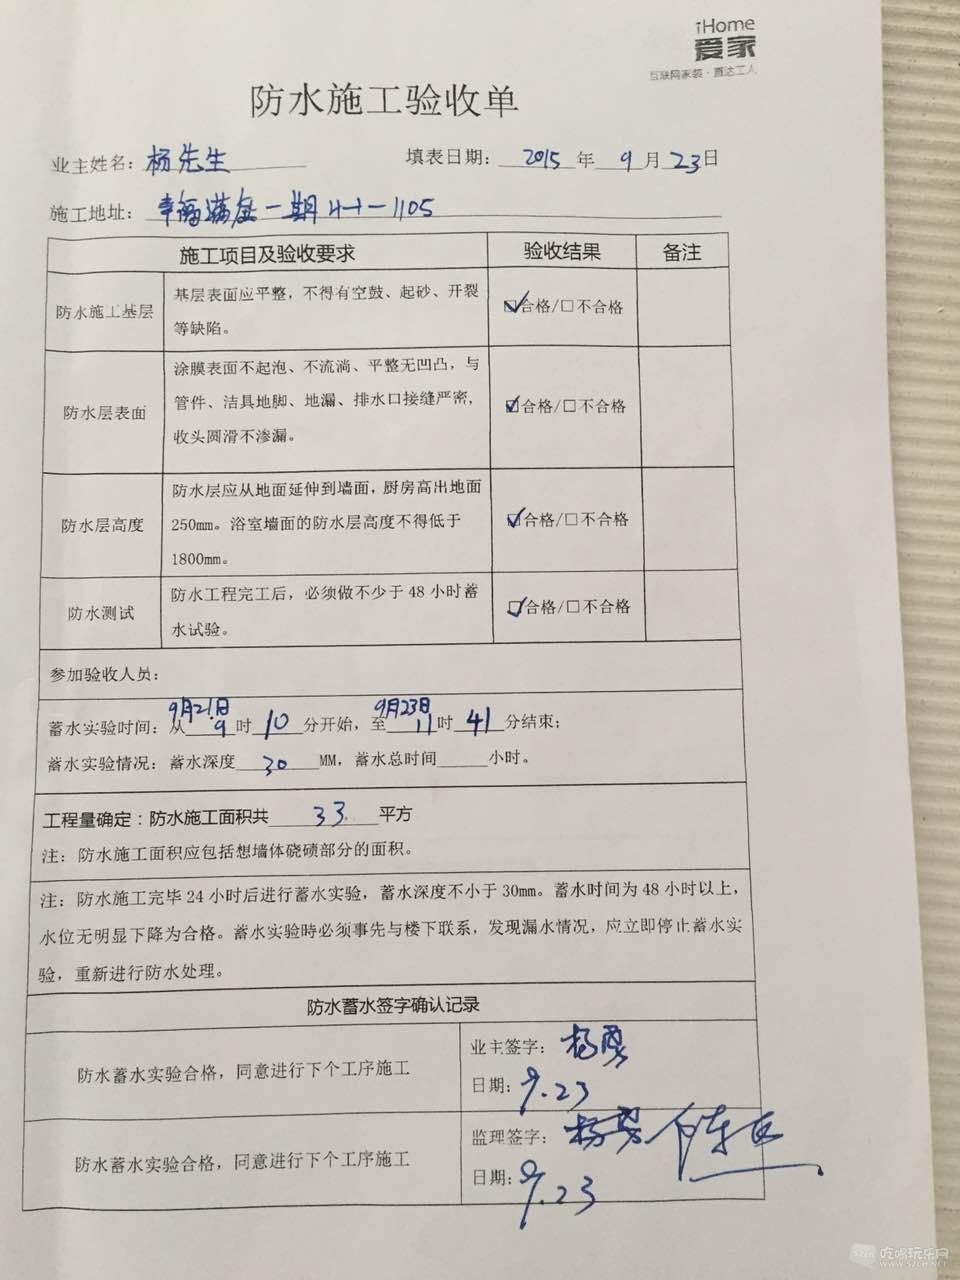 iHome
爱家
互联网家装·直达工人
防水施工验收单
业主姓名：杨先生 填表日期：2015年9月23日
施工地址：幸福满庭一期4-1-1105
施工项目及验收要求 验收结果 备注
防水施工基层 基层表面应平整，不得有空鼓、起砂、开裂
等缺陷。
☑合格/□不合格
防水层表面 涂膜表面不起泡、不流淌、平整无凹凸，与
管件、洁具地脚、地漏、排水口接缝严密，
收头圆滑不渗漏。
☑合格/□不合格
防水层高度 防水层应从地面延伸到墙面，厨房高出地面
250mm。浴室墙面的防水层高度不得低于
1800mm。
☑合格/□不合格
防水测试 防水工程完工后，必须做不少于48小时蓄
水试验。
☑合格/□不合格
参加验收人员：
9月21日 9月23日
蓄水实验时间：从9时10分开始，至11时41分结束；
蓄水实验情况：蓄水深度30MM，蓄水总时间____小时。
工程量确定：防水施工面积共33平方
注：防水施工面积应包括想墙体硗碛部分的面积。
注：防水施工完毕24小时后进行蓄水实验，蓄水深度不小于30mm。蓄水时间为48小时以上，
水位无明显下降为合格。蓄水实验時必须事先与楼下联系，发现漏水情况，应立即停止蓄水实
验，重新进行防水处理。
防水蓄水签字确认记录
防水蓄水实验合格，同意进行下个工序施工
业主签字：杨
日期：9.23
防水蓄水实验合格，同意进行下个工序施工
监理签字：杨
日期：9.23
吃喝玩乐网
WWW.SZCH.NET